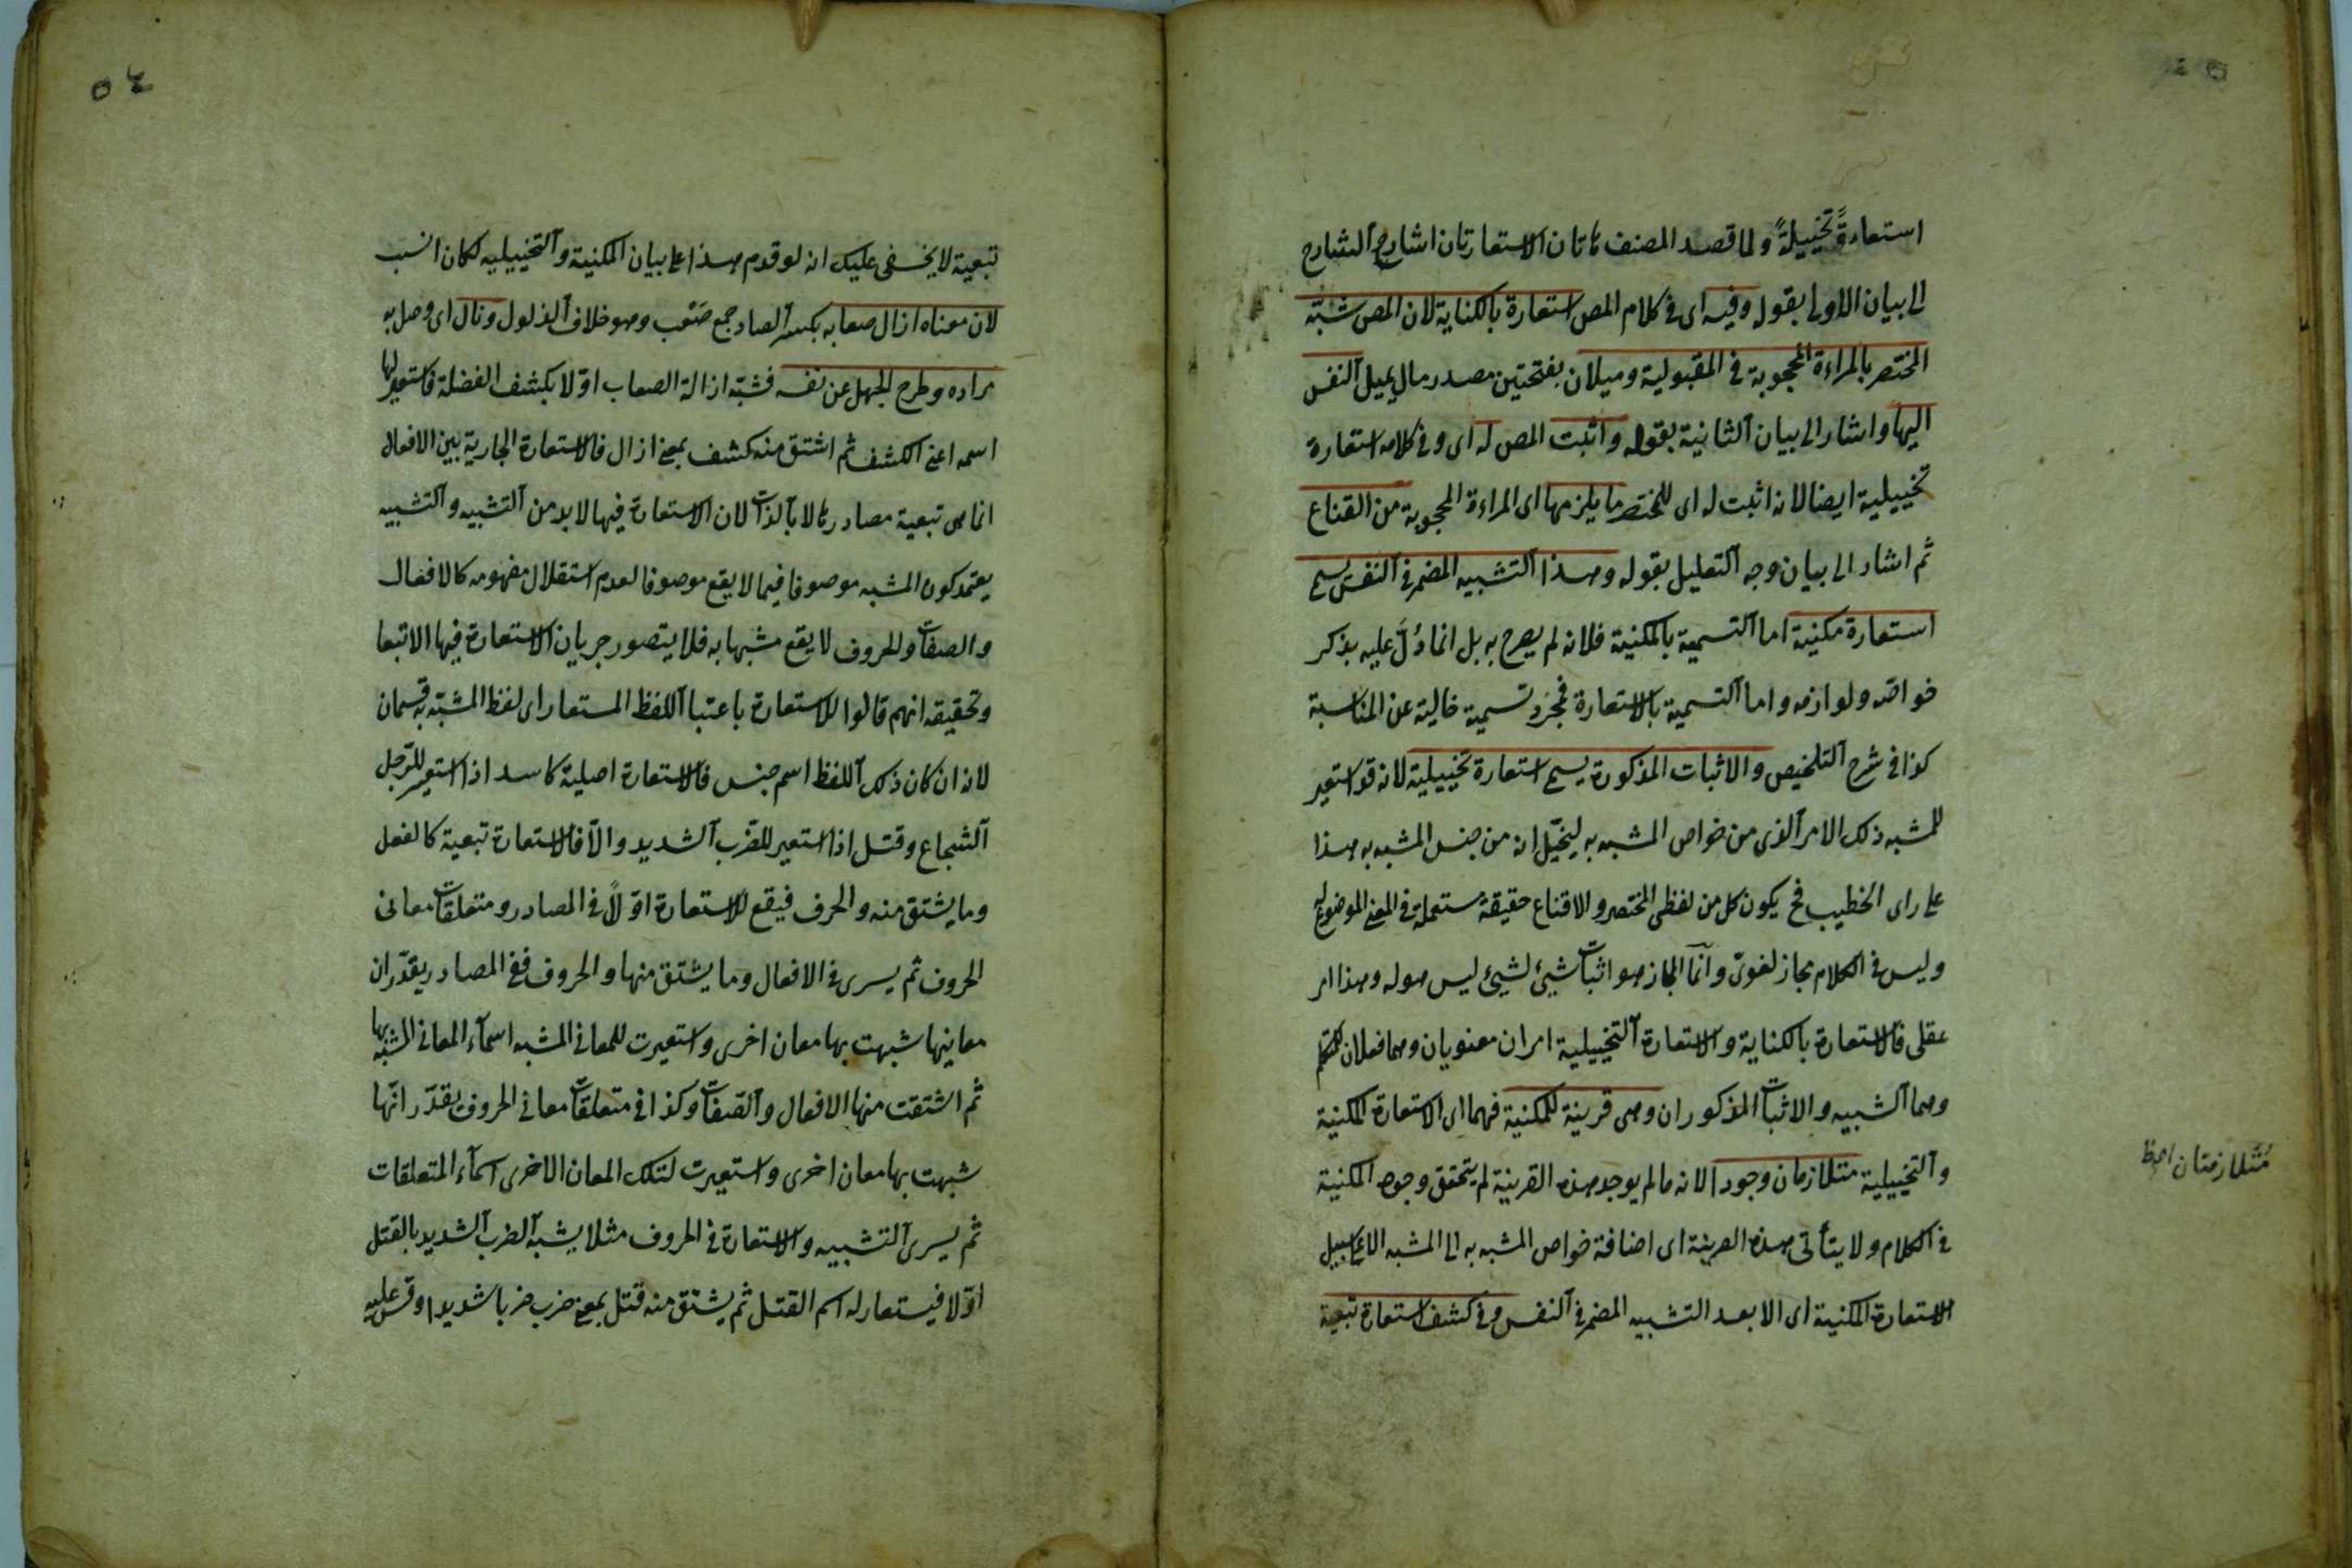 استعارةً تخييلةً ولما قصد المصنف هاتان الاستعارتان اشار الشارح
الى بيان الاولى بقوله وفيه اى فى كلام المص استعارة بالكناية لان المص شبّه
المختصر بالمراءة المحجوبة فى المقبولية وميلان بفتحتين مصدر مال يميل النفس
اليها واشار الى بيان الثانية بقوله واثبت المص له اى وفى كلامه استعارة
تخييلية ايضا لانه اثبت له اى للمختصر ما يلزمها اى المراءة المحجوبة من القناع
ثم اشار الى بيان وجه التعليل بقوله وهذا التشبيه المضمر فى النفس يسمى
استعارة مكنية اما التسمية بالمكنية فلانه لم يصرح به بل انما دُلَّ عليه بذكر
خواصّه ولوازمه واما التسمية بالاستعارة فمجرّد تسمية خالية عن المناسبة
كذا فى شرح التلخيص والاثبات المذكورة يسمى استعارة تخييلية لانه قد استعير
للمشبه ذلك الامر الذى من خواص المشبه به ليخيّل انه من جنس المشبه به هذا
على راى الخطيب فح يكون كل من لفظى المختصر والاقناع حقيقةً مستعملة فى المعنى الموضوع له
وليس فى الكلام مجاز لغوىّ وانّما المجاز هو اثبات شيئ لشيئ ليس هو له وهذا امر
عقلى فالاستعارة بالكناية والاستعارة التخييلية امران معنويان وهما فعلان للمتكلم
وهما التشبيه والاثبات المذكوران وهى قرينة للمكنية فهما اى الاستعارة المكنية
والتخييلية متلازمان وجودا لانه ما لم يوجد هذه القرينة لم يتحقق وجود المكنية
فى الكلام ولا يتأتى هذه القرينة اى اضافة خواص المشبه به الى المشبه الا على سبيل
الاستعارة المكنية اى الا بعد التشبيه المضمر فى النفس وفى كشف استعارة تبعية
متلازمتان
٥٤
تبعية لا يخفى عليك انه لو قدم هذا على بيان المكنية والتخييليه لكان انسب
لان معناه ازال صعابه بكسر الصاد جمع صَعْب وهو خلاف الذلول ونال اى وصل به
مراده وطرح الجهل عن نفسه فشبّه ازالة الصعاب اوّلا بكشف الفضلة فاستعير لها
اسمه اعنى الكشف ثم اشتق منه كشف بمعنى ازال فالاستعارة الجارية بين الافعال
انما هى تبعية مصادرها لا بالذات لان الاستعارة فيها لا بد من التشبيه والتشبيه
يعتمد كون المشبه موصوفا فيما لا يقع موصوفا لعدم استقلال مفهومه كالافعال
والصفات والحروف لا يقع مشبها به فلا يتصور جريان الاستعارة فيها الا تبعا
وتحقيقه انهم قالوا الاستعارة باعتبا اللفظ المستعار اى لفظ المشبّه به قسمان
لانه ان كان ذلك اللفظ اسم جنس فالاستعارة اصلية كاسد اذا استعير للرّجل
الشجاع وقتل اذا استعير للضّرب الشديد والّا فالاستعارة تبعية كالفعل
وما يشتق منه والحرف فيقع الاستعارة اوّلاً فى المصادر ومتعلقات معانى
الحروف ثم يسرى فى الافعال وما يشتق منها والحروف ففى المصادر يقدّر ان
معانيها شبهت بها معان اخرى واستعيرت للمعانى المشبه اسمآء المعانى المشبّه بها
ثم اشتقت منها الافعال والصّفات وكذا فى متعلقات معانى الحروف يقدّر انّها
شبهت بها معان اخرى واستعيرت لتلك المعان الاخرى اسمآء المتعلقات
ثم يسرى التشبيه والاستعارة فى الحروف مثلا يشبه الضرب الشديد بالقتل
اوّلا فيستعار له اسم القتل ثم يشتق منه قتل بمعنى ضرب ضربا شديدا وقس عليه